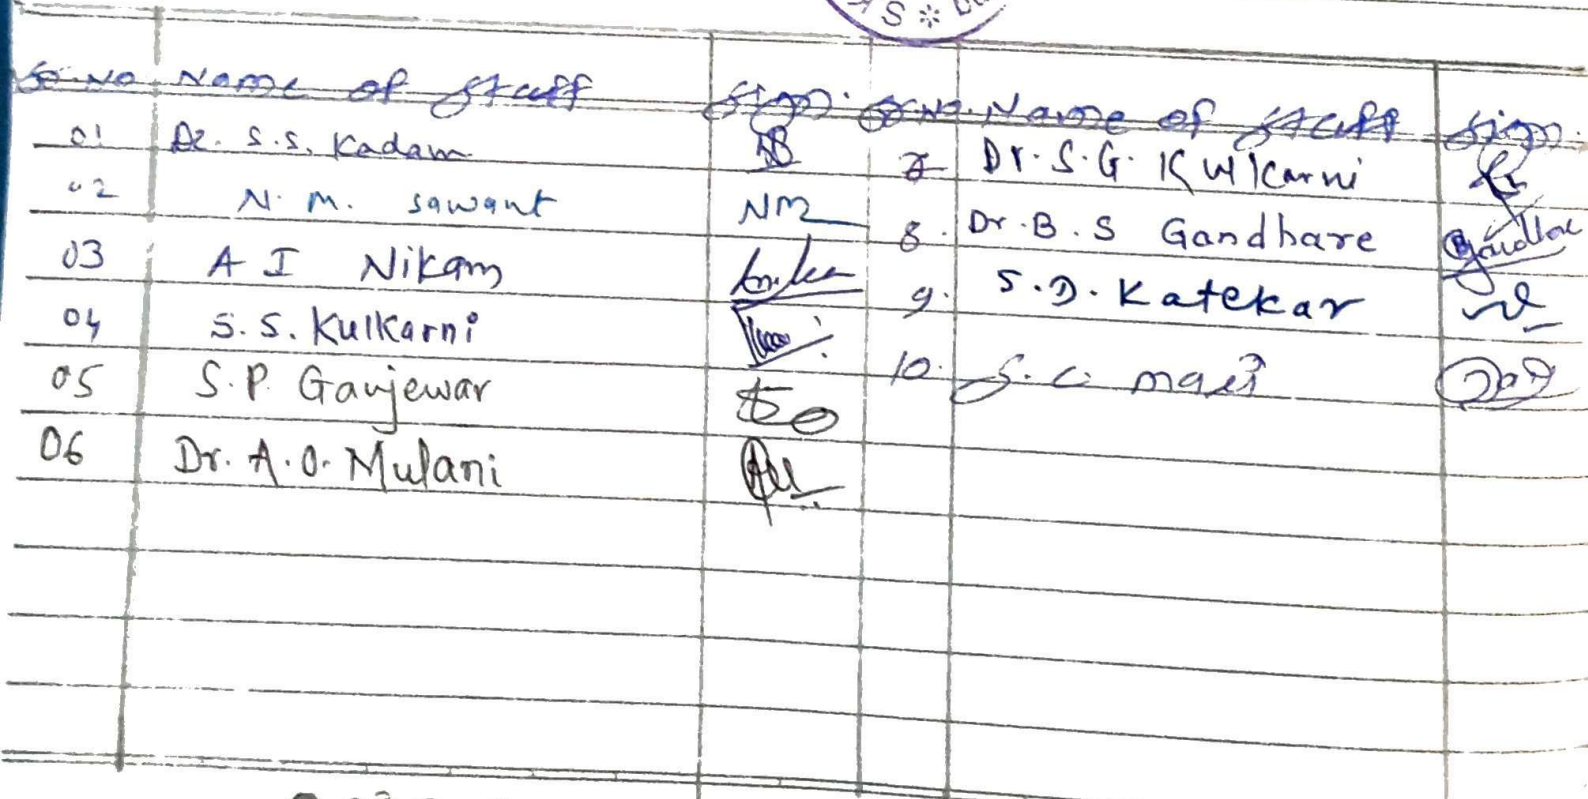 S * D
Sr. No Name of staff Sign. Sr. No. Name of staff Sign.
01 Dr. S.S. Kadam 7 Dr. S.G. Kulkarni
02 N. M. Sawant NM 8. Dr. B. S Gandhare Gandhare
03 A I Nikam 9. S.D. Katekar
04 S. S. Kulkarni 10. S. C.
05 S.P. Ganjewar
06 Dr. A.O. Mulani